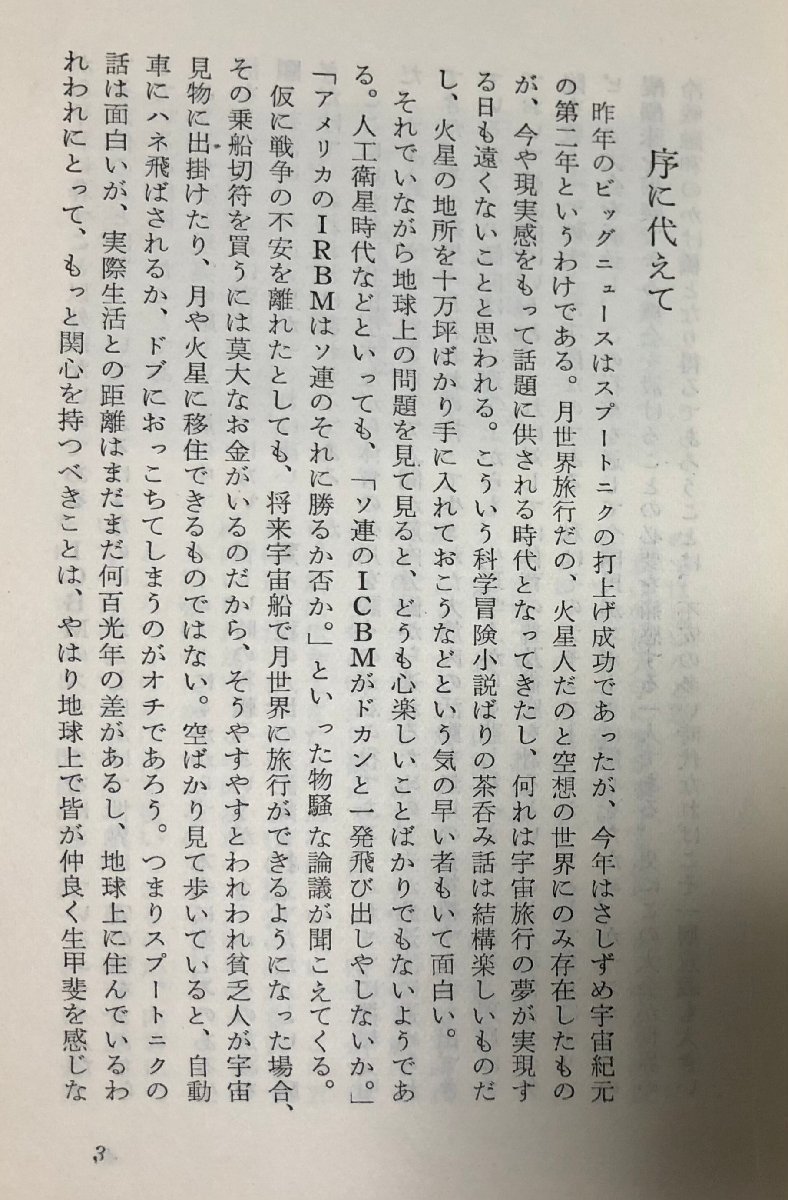 序に代えて
昨年のビッグニュースはスプートニクの打上げ成功であったが、今年はさしずめ宇宙紀元
の第二年というわけである。月世界旅行だの、火星人だのと空想の世界にのみ存在したもの
が、今や現実感をもって話題に供される時代となってきたし、何れは宇宙旅行の夢が実現す
る日も遠くないことと思われる。こういう科学冒険小説ばりの茶呑み話は結構楽しいものだ
し、火星の地所を十万坪ばかり手に入れておこうなどという気の早い者もいて面白い。
それでいながら地球上の問題を見て見ると、どうも心楽しいことばかりでもないようであ
る。人工衛星時代などといっても、「ソ連のＩＣＢＭがドカンと一発飛び出しやしないか。」
「アメリカのＩＲＢＭはソ連のそれに勝るか否か。」といった物騒な論議が聞こえてくる。
仮に戦争の不安を離れたとしても、将来宇宙船で月世界に旅行ができるようになった場合、
その乗船切符を買うには莫大なお金がいるのだから、そうやすやすとわれわれ貧乏人が宇宙
見物に出掛けたり、月や火星に移住できるものではない。空ばかり見て歩いていると、自動
車にハネ飛ばされるか、ドブにおっこちてしまうのがオチであろう。つまりスプートニクの
話は面白いが、実際生活との距離はまだまだ何百光年の差があるし、地球上に住んでいるわ
れわれにとって、もっと関心を持つべきことは、やはり地球上で皆が仲良く生甲斐を感じな
3